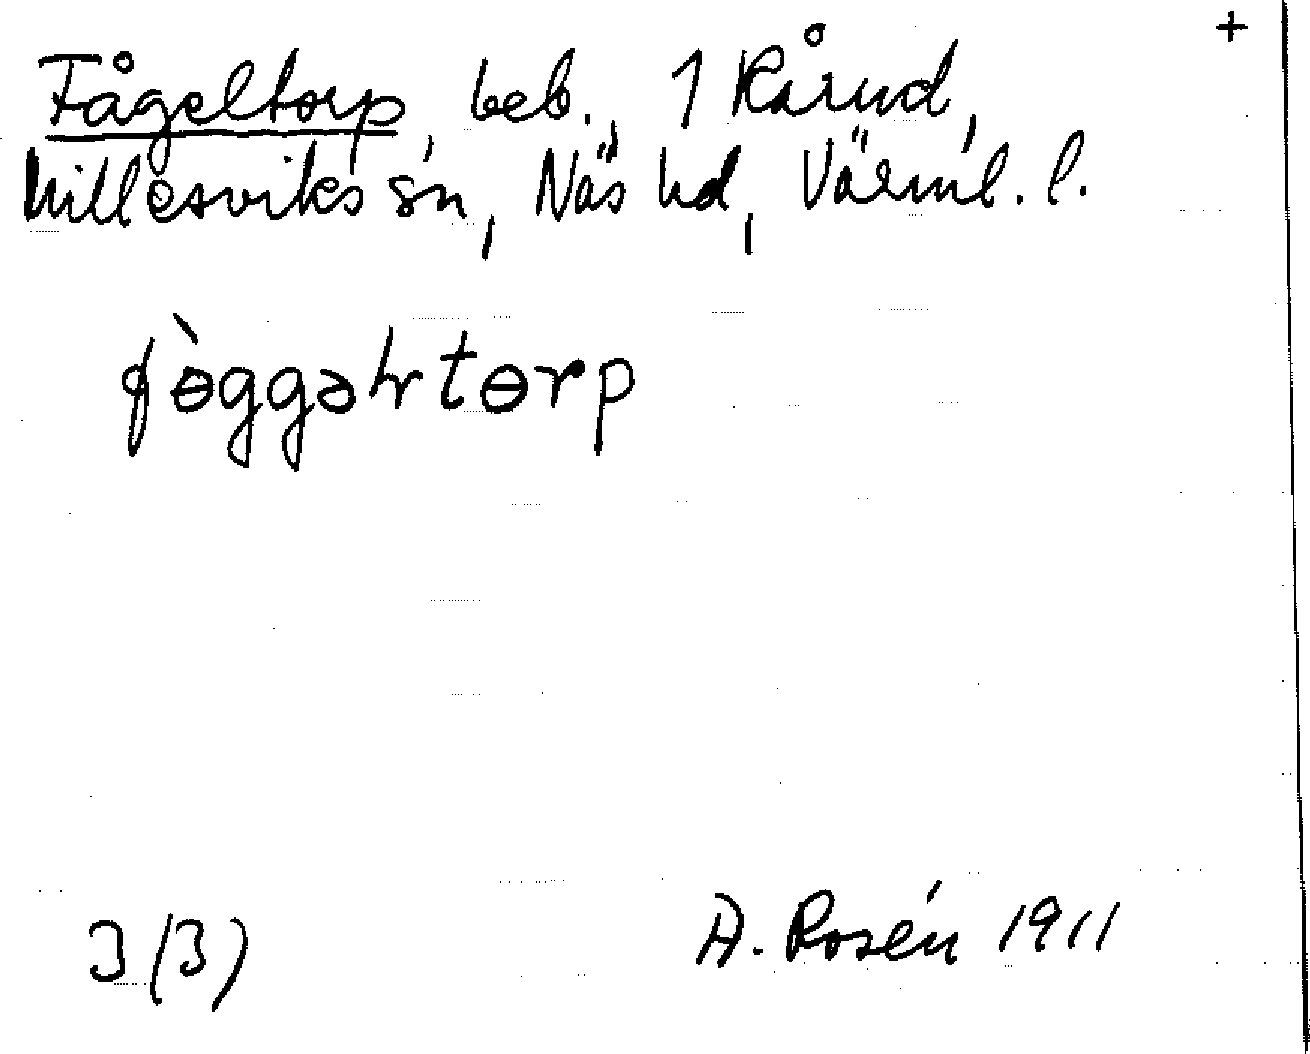 +
Fågeltorp, beb., 1 Rårud,
Millesviks sn, Näs hd, Värml. l.
fɵ̀ggəɫtɵrp
3 (3) A. Rosén 1911